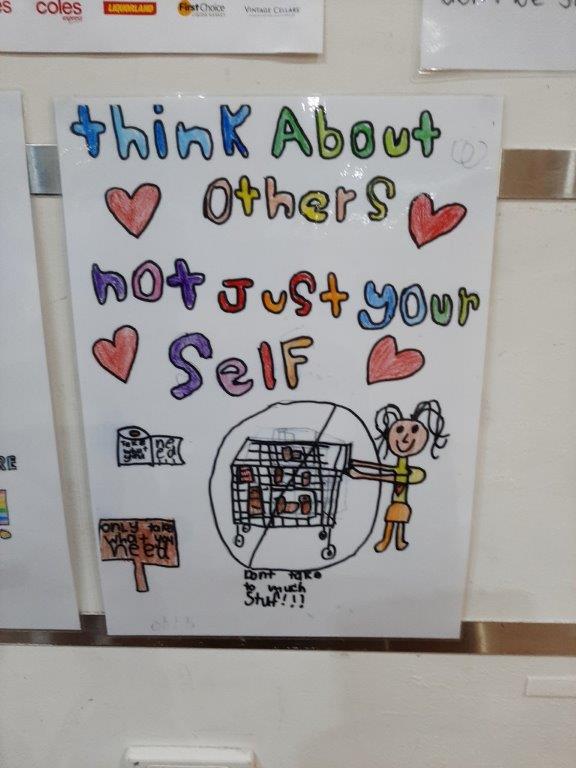 coles
express
LIQUORLAND
FirstChoice
LIQUOR MARKET
VINTAGE CELLARS
think About
Others
not Just your
Self
take
what
you
ne
ed
only take
what you
need
Dont take
to much
Stuf!!!
RE